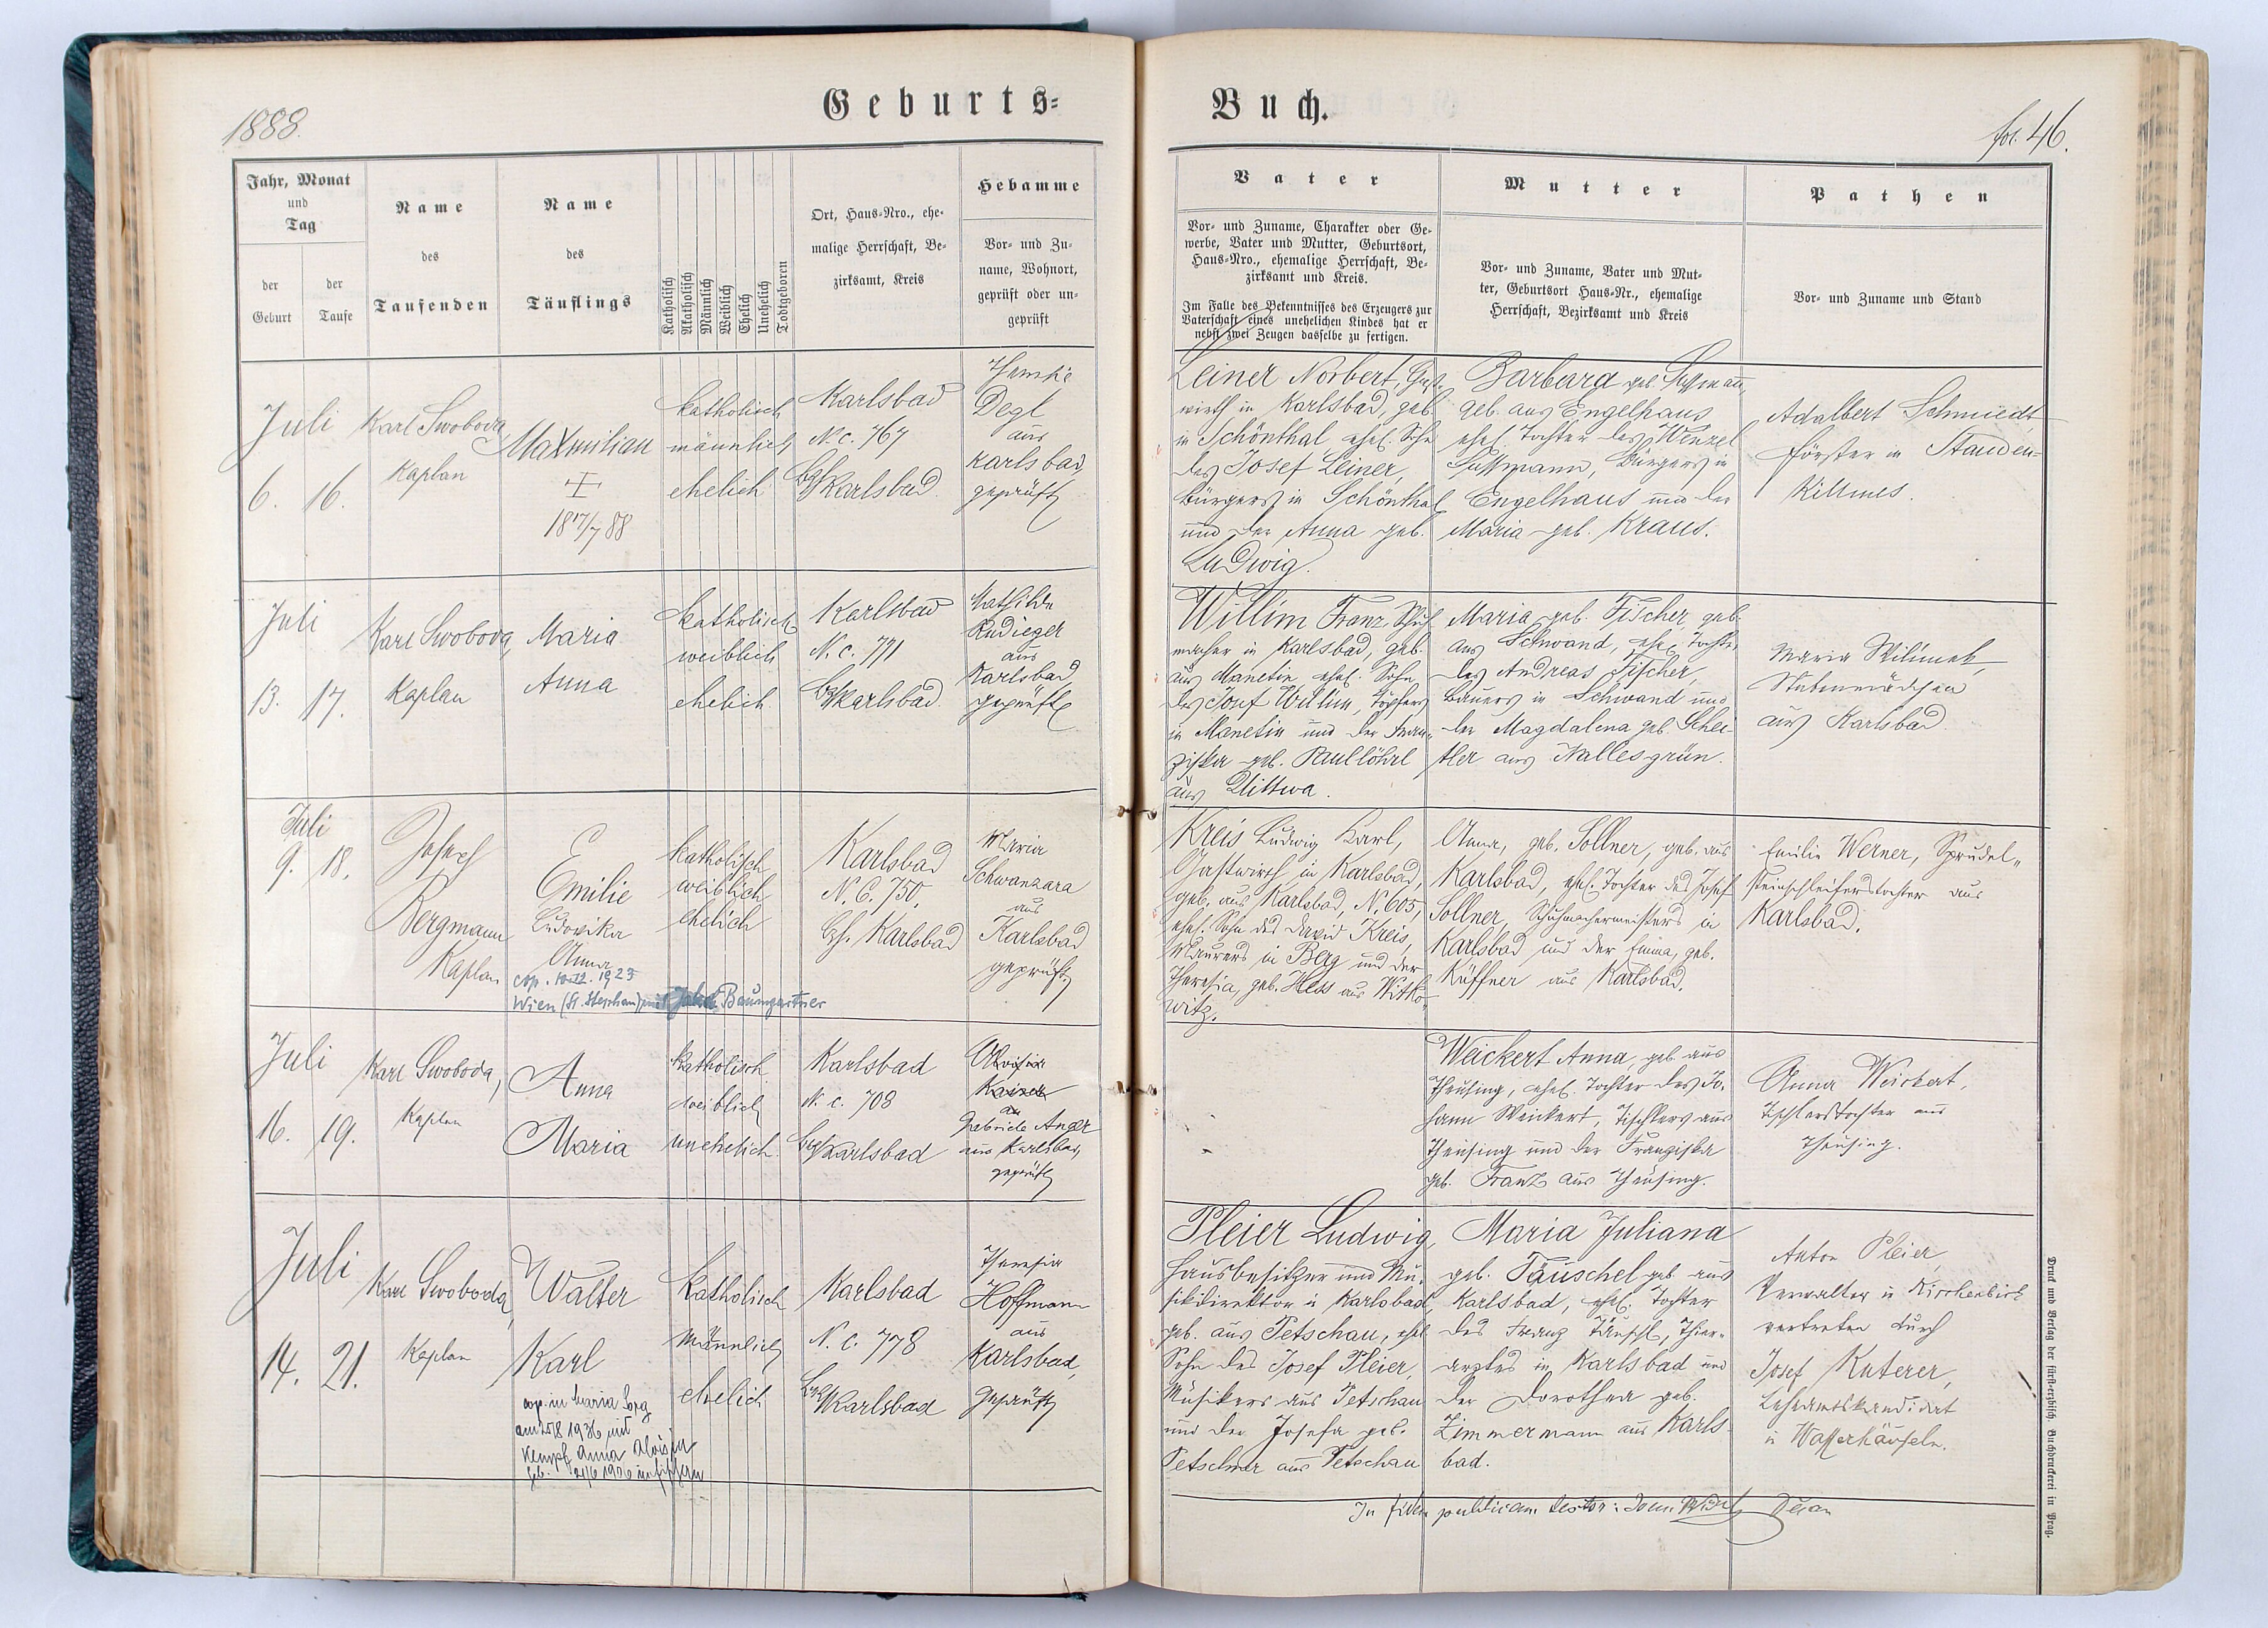 1888.
Geburts-
Buch.
fol. 46.
Jahr, Monat
und
Tag
der
Geburt
der
Taufe
Name
des
Taufenden
Name
des
Täuflings
Katholisch
Akatholisch
Männlich
Weiblich
Ehelich
Unehelich
Todtgeboren
Ort, Haus-Nro., ehe-
malige Herrschaft, Be-
zirksamt, Kreis
Hebamme
Vor- und Zu-
name, Wohnort,
geprüft oder un-
geprüft
Vater
Vor- und Zuname, Charakter oder Ge-
werbe, Vater und Mutter, Geburtsort,
Haus-Nro., ehemalige Herrschaft, Be-
zirksamt und Kreis.
Im Falle des Bekenntnisses des Erzeugers zur
Vaterschaft eines unehelichen Kindes hat er
nebst zwei Zeugen dasselbe zu fertigen.
Mutter
Vor- und Zuname, Vater und Mut-
ter, Geburtsort Haus-Nr., ehemalige
Herrschaft, Bezirksamt und Kreis
Pathen
Vor- und Zuname und Stand
Juli
6. 16.
Karl Swoboda
Kaplan
Maximilian
18 17/7 88
katholisch
männlich
ehelich
Karlsbad
N. c. 767
Karlsbad
Degl
aus
Karlsbad
geprüft
Leiner Norbert, Gast-
wirth in Karlsbad, geb.
in Schönthal ehel. Sohn
des Josef Leiner,
Bürgers in Schönthal
und der Anna geb.
Ludwig.
Barbara geb.
geb. aus Engelhaus
ehel. Tochter des Wenzel
Bürgers in
Engelhaus und der
Maria geb. Kraus.
Adalbert Schmiedt
Förster in Stauden-
Juli
13. 17.
Karl Swoboda
Kaplan
Maria
Anna
katholisch
weiblich
ehelich
Karlsbad
N. c. 791
Karlsbad
Mathilde
Rudieger
aus
Karlsbad
geprüft
Willim Franz Schuh-
macher in Karlsbad, geb.
aus Manetin ehel. Sohn
des Josef Willim, Töpfers
in Manetin und der Fran-
ziska geb.
aus
Maria geb. Fischer geb.
aus Schwand, ehel. Tochter
des Andreas Fischer,
Bauers in Schwand und
der Magdalena geb. Schei-
tler aus Nallesgrün.
Maria
Stubenmädchen
aus Karlsbad
Juli
9. 18.
Josef
Bergmann
Kaplan
Emilie
Ludovika
Anna
cop. 1923
Wien (St. Stephan) mit Baumgartner
katholisch
weiblich
ehelich
Karlsbad
N. C. 750.
Karlsbad
Maria
Schwanzara
aus
Karlsbad
geprüft
Kreis Ludwig Karl,
Gastwirth in Karlsbad,
geb. aus Karlsbad, N. 605,
ehel. Sohn des David Kreis,
Maurers in Berg und der
Theresia, geb. Hess aus Witko-
witz.
Anna, geb. Sollner, geb. aus
Karlsbad, ehel. Tochter des Josef
Sollner, Schuhmachermeisters in
Karlsbad und der Emma, geb.
Küffner aus Karlsbad.
Emilie Werner, Sprudel-
steinschleiferstochter aus
Karlsbad.
Juli
16. 19.
Karl Swoboda,
Kaplan
Anna
Maria
katholisch
weiblich
unehelich
Karlsbad
N. c. 708
Karlsbad
Gabriele Anger
aus Karlsbad,
geprüft
Weickert Anna, geb. aus
Theusing, ehel. Tochter des Jo-
hann Weickert, Tischlers aus
Theusing und der Franziska
geb. Franz aus Theusing.
Anna Weickert,
Tischlerstochter aus
Theusing.
Juli
14. 21.
Karl Swoboda,
Kaplan
Walter
Karl
cop. in Maria Sorg
1936 mit
Kempf Anna Aloisia
geb. 1906 in
katholisch
männlich
ehelich
Karlsbad
N. c. 778
Karlsbad
Theresia
Hoffmann
aus
Karlsbad,
geprüft
Pleier Ludwig,
Hausbesitzer und Mu-
sikdirektor in Karlsbad,
geb. aus Petschau, ehel.
Sohn des Josef Pleier,
Musikers aus Petschau
und der Josefa geb.
Petschner aus Petschau
Maria Juliana
geb. Täuschel geb. aus
Karlsbad, ehel. Tochter
des Franz Täuschl, Thier-
arztes in Karlsbad und
der Dorothea geb.
Zimmermann aus Karls-
bad.
Anton Pleier,
Verwalter in Kirchenbirk
vertreten durch
Josef Kuterer,
Lehramtskandidat
in Wasserhäuseln.
In fidem publicam testor: Dechant
Druck und Verlag der fürst-erzbisch. Buchdruckerei in Prag.